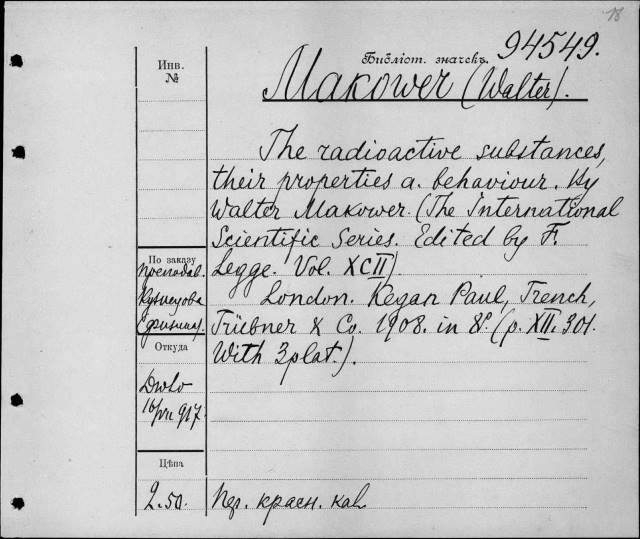 18
Библіот. значекъ. 94549.
Инв.
№
Makower (Walter).
The radioactive substances,
their properties a. behaviour. By
Walter Makower. (The International
Scientific Series. Edited by F.
Legge. Vol. XCII)
London. Kegan Paul, Trench,
Trübner & Co. 1908. in 8º. (p. XII. 301.
With 3 plat.).
По заказу
преподав.
Кузнецова
(физика).
Откуда
917.
Цѣна
2.50.
Пер. красн. кал